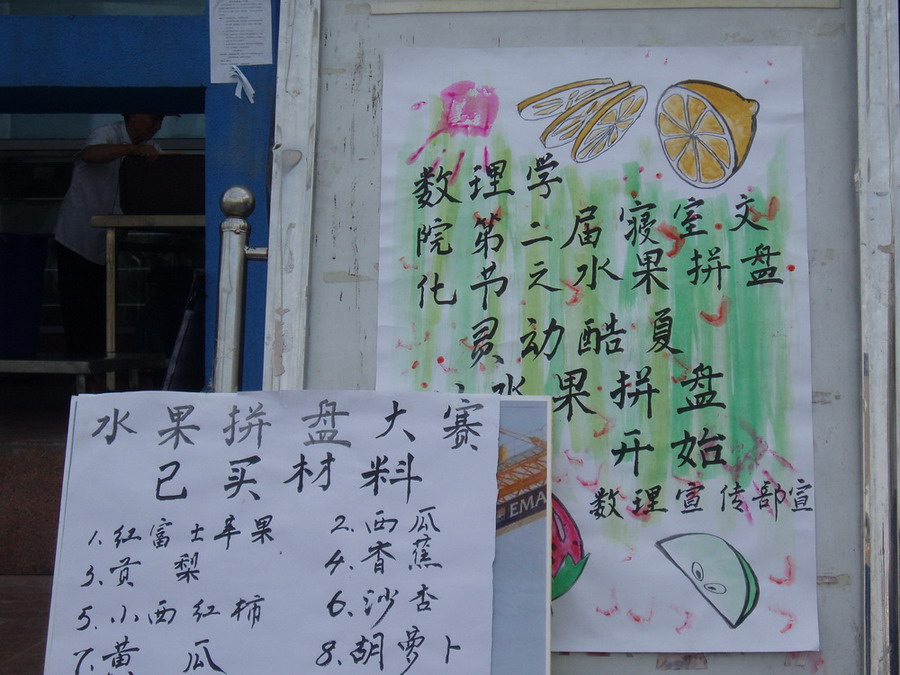 数理学
院第二届寝室文
化节之水果拼盘
灵动酷夏
水果拼盘
开始
数理宣传部宣
水果拼盘大赛
已买材料
1.红富士苹果 2.西瓜
3.贡梨 4.香蕉
5.小西红柿 6.沙杏
7.黄瓜 8.胡萝卜
EMA